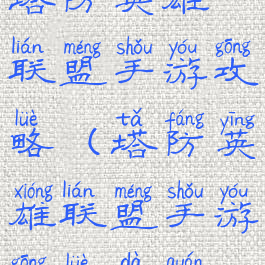 塔防英雄
lián méng shǒu yóu gōng
联盟手游攻
lüè tǎ fáng yīng
略（塔防英
xióng lián méng shǒu yóu
雄联盟手游
gōng lüè dà quán